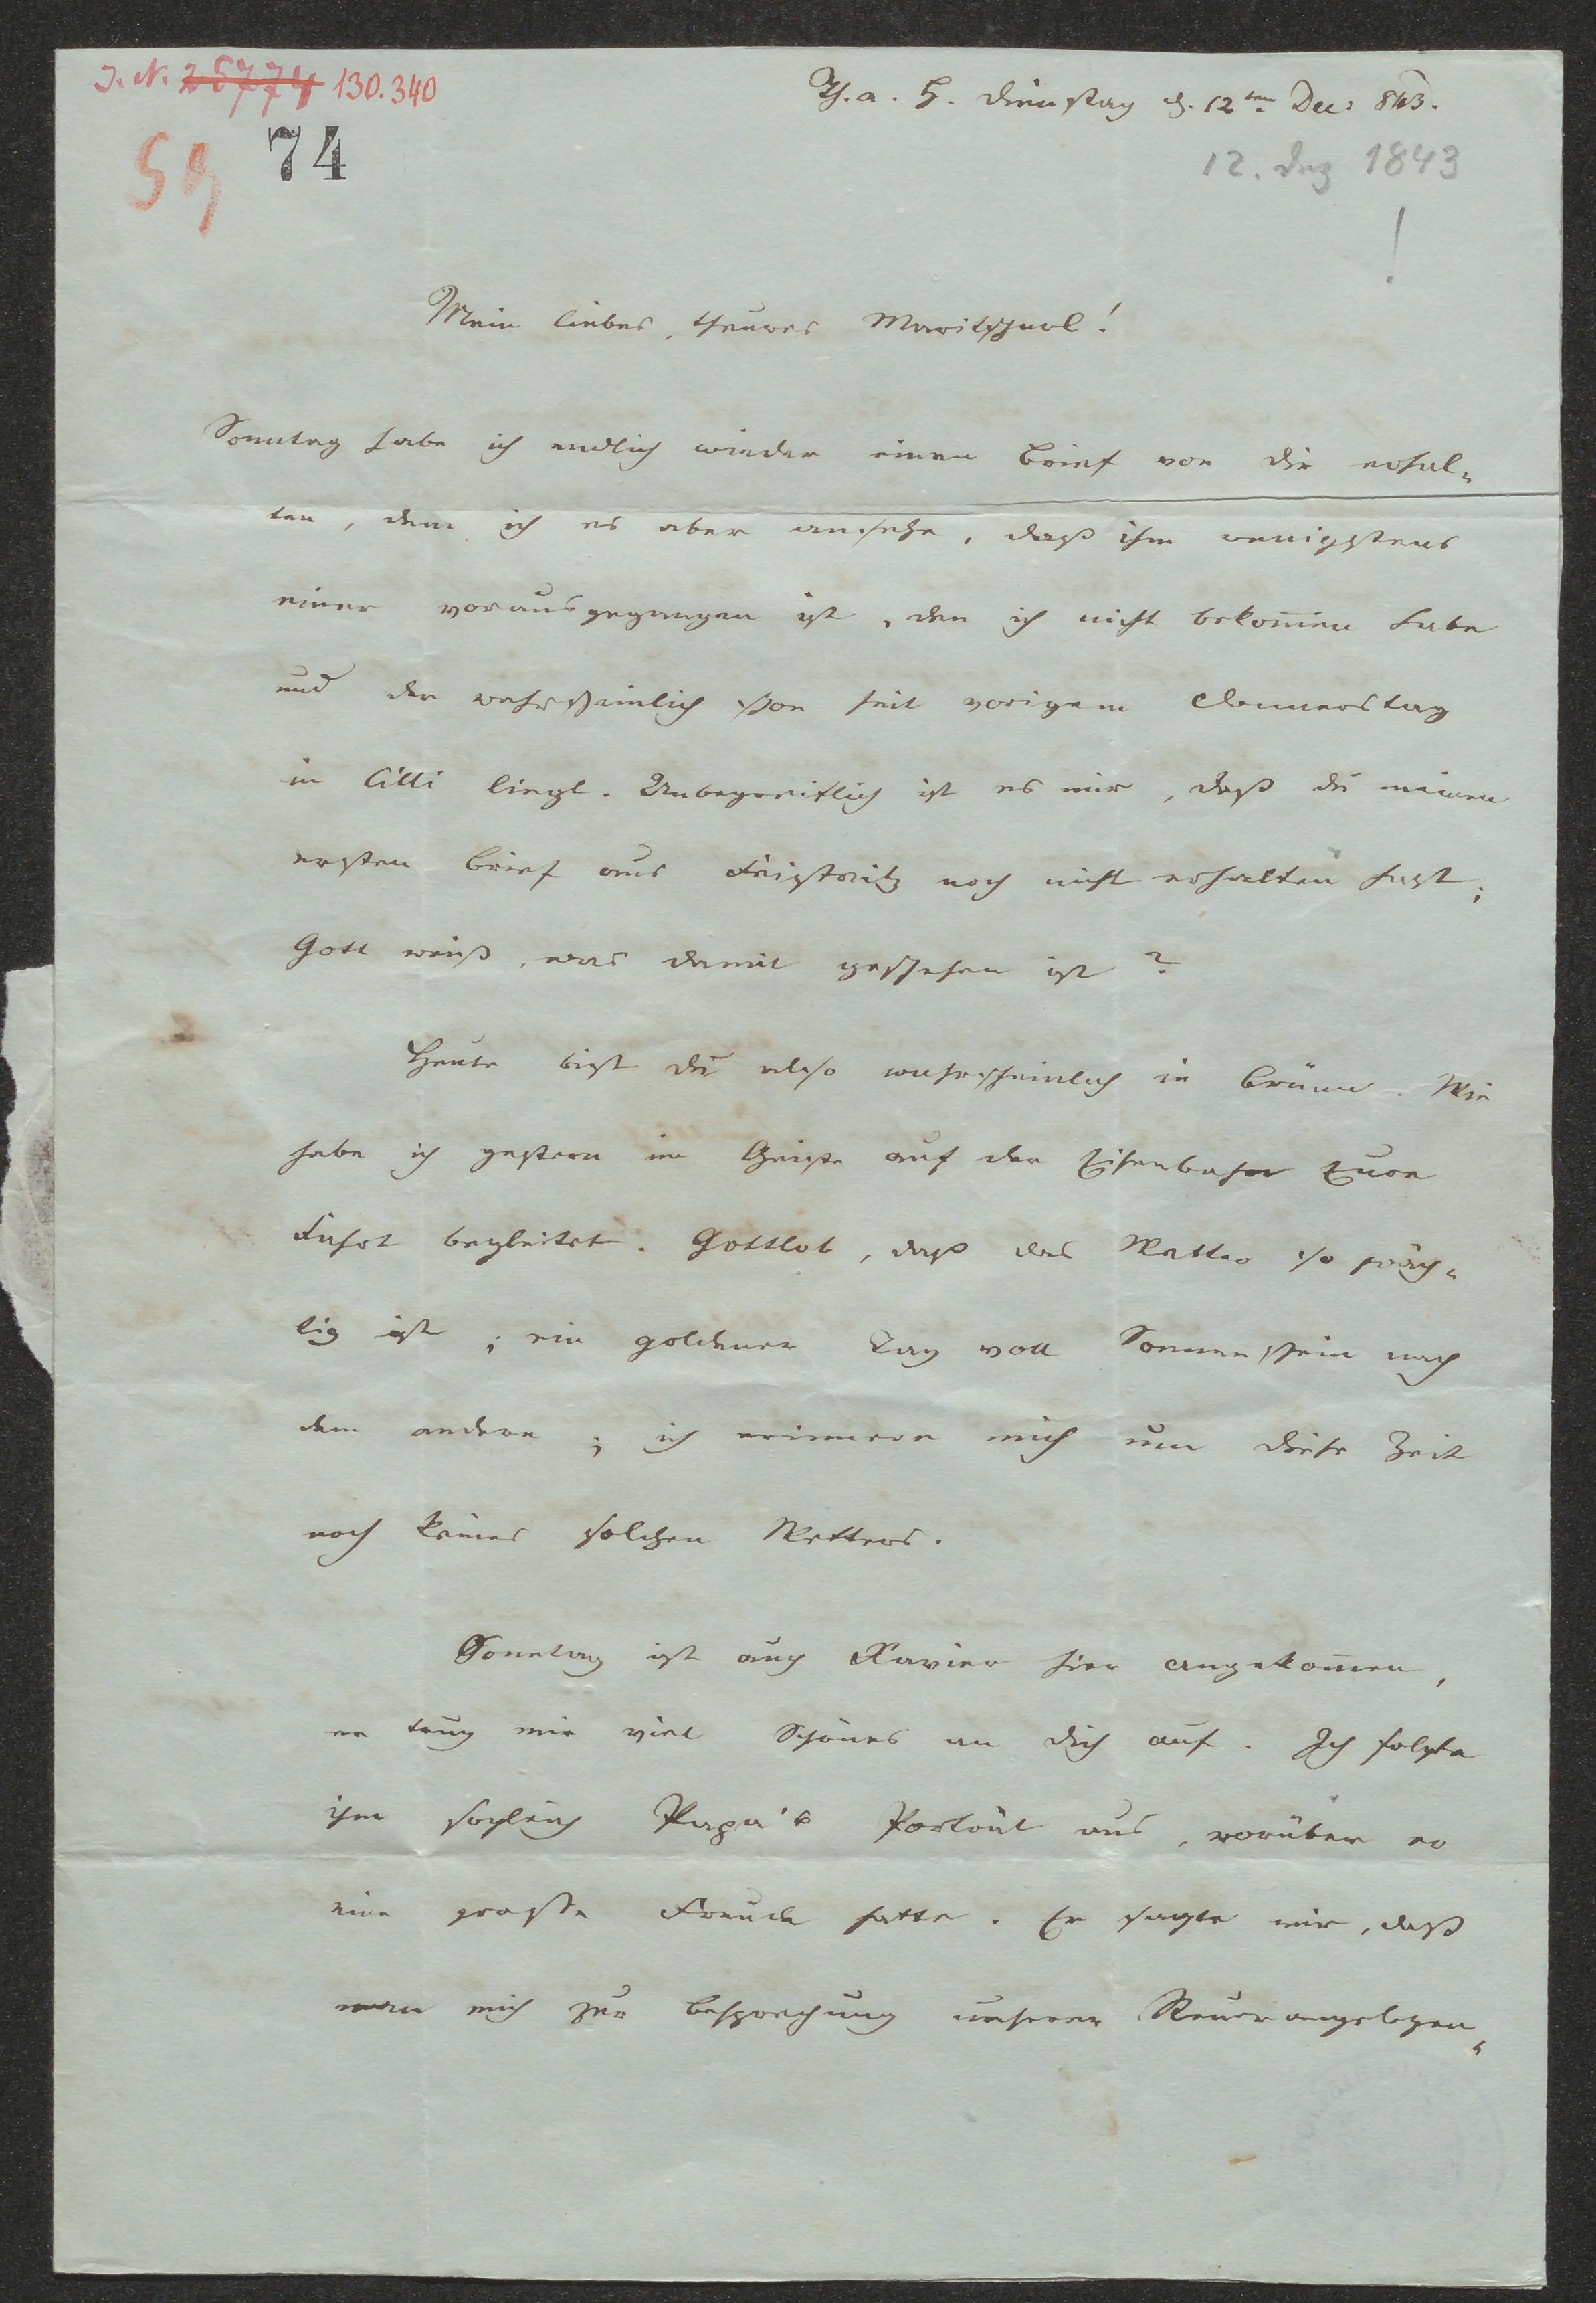 J. N. 25774 130.340
Th. a. H. Dienstag d. 12ten Dec: 843.
59
74
12. Dez 1843
!
Mein liebes, theures Maritscherl!
Sonntag habe ich endlich wieder einen Brief von dir erhal-
ten, dem ich es aber ansehe, daß ihm wenigstens
einer vorausgegangen ist, den ich nicht bekom̄en habe
und der wahrscheinlich schon seit vorigem Donnerstag
in Cilli liegt. Unbegreiflich ist es mir, daß du meinen
ersten Brief aus Feistritz noch nicht erhalten hast;
Gott weiß, was damit geschehen ist?
Heute bist du also wahrscheinlich in Brünn. Wie
habe ich gestern im Geiste auf der Eisenbahn Eure
Fahrt begleitet. Gottlob, daß das Wetter so präch-
tig ist; ein goldener Tag voll Sonnenschein nach
dem andern; ich erinnere mich um diese Zeit
noch keines solchen Wetters.
Sonntag ist auch Xavier hier angekom̄en,
er trug mir viel Schönes an dich auf. Ich folgte
ihm sogleich Papa's Porträt aus, worüber er
eine große Freude hatte. Er sagte mir, daß
man mich zur Besprechung unserer Steuerangelegen-